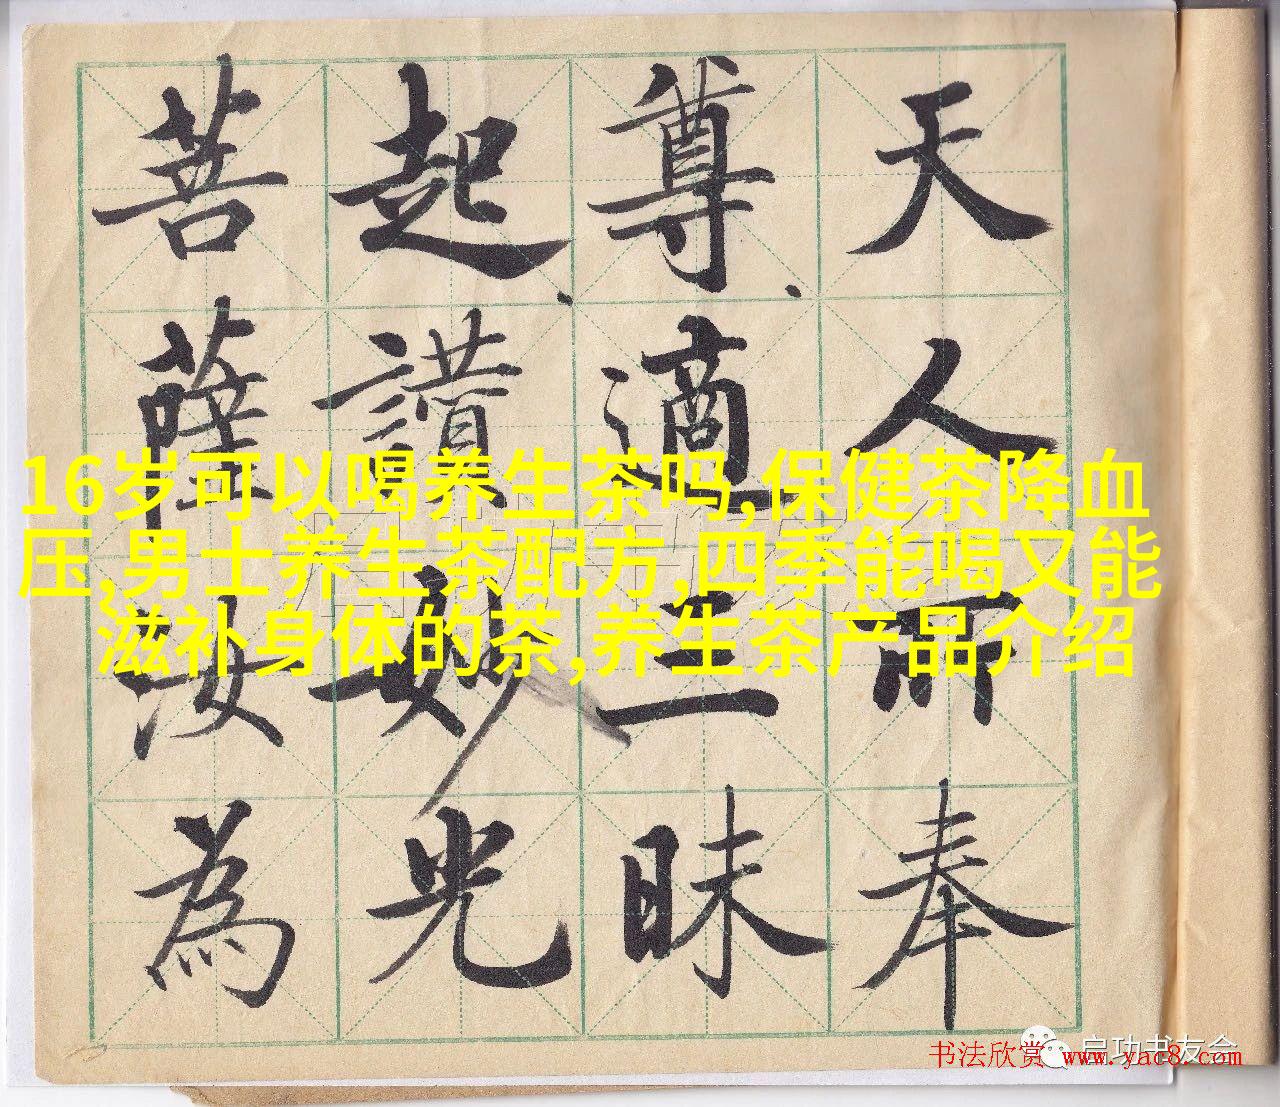 天人而奉
尊適三昧
起讚妙光
菩薩汝為
16岁可以喝养生茶吗,保健茶降血
压,男士养生茶配方,四季能喝又能
滋补身体的茶,养生茶产品介绍
启功书友会
书法欣赏 www.yac8.com